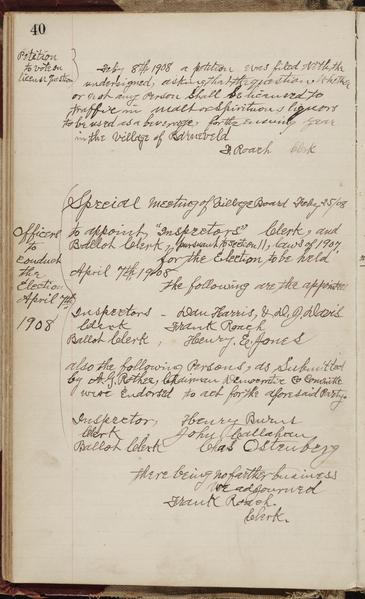 40
Petition
to vote on
license question
Feby 8th 1908 a petition was filed with the
undersigned, asking that the question, whether
or not any Person shall be licensed to
traffic in malt or Spirituous liquors
to be used as a beverage, for the ensuing year
in the Village of Barneveld
F Roach Clerk
Special Meeting of Village Board Feby 25/08
Officers
to
conduct
the
Election
April 7th
1908
to appoint, "Inspectors" Clerk, and
Ballot Clerk, pursuant to section 11, laws of 1907
for the Election to be held
April 7th 1908
The following are the appointees
Inspectors - Dan Harris, & D. J. Davis
Clerk Frank Roach
Ballot Clerk, Henry E. Jones
also the following Persons, as Submitted
by A. G. Rothe, Chairman Democratic Co Committee
were Endorsed to act for the aforesaid Party.
Inspector, Henry Burns
Clerk John Callahan
Ballot Clerk Chas Ostenberg
there being no farther business
we adjourned
Frank Roach.
Clerk.